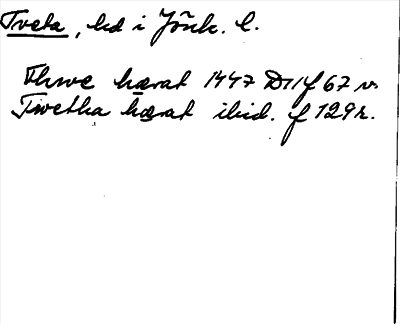 Tveta, hd i Jönk. l.
Thwe hærat 1447 D11 f 67 v.
Twetha hærat ibid. f 129 r.